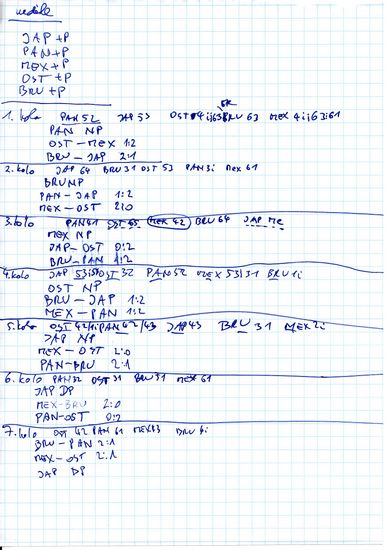 neděle
JAP +P
PAN +P
MEX +P
OST +P
BRU +P
1. kolo PAN 52 JAP 53 BRU 63
PAN NP
OST - MEX 1:2
BRU - JAP 2:1
2. kolo JAP 64 BRU 31 OST 53 PAN 3i MEX 61
BRU NP
PAN - JAP 1:2
MEX - OST 2:0
3. kolo PAN 41 MEX 42 BRU 64
MEX NP
JAP - OST 0:2
BRU - PAN 1:2
4. kolo JAP OST 32 PAN 52 MEX 53 BRU 1i
OST NP
BRU - JAP 1:2
MEX - PAN 1:2
5. kolo OST PAN 62/43 JAP 43 BRU 31 MEX 2i
JAP NP
MEX - OST 2:0
PAN - BRU 2:1
6. kolo PAN 32 OST 31 BRU 31 MEX 61
JAP DP
MEX - BRU 2:0
PAN - OST 0:2
7. kolo OST 42 PAN 61 MEX BRU
BRU - PAN 2:1
MEX - OST 2:1
JAP DP